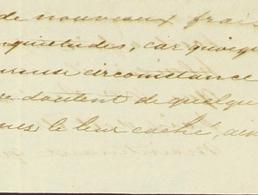 de nouveaux frais
quiétudes, car quoique
circonstance
doutent de quelque
le leur cache, ain